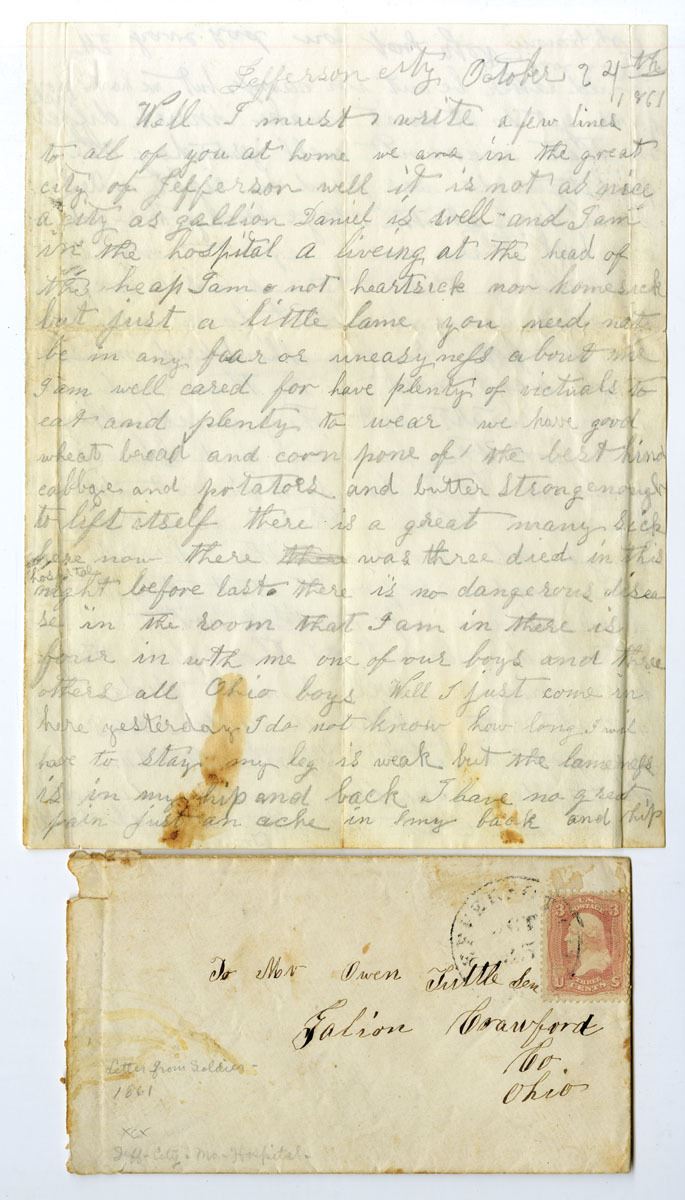 Jefferson city October 24th
1861
Well I must write a few lines
to all of you at home we are in the great
city of Jefferson well it is not as nice
a city as gallion Daniel is well and I am
in the hospital a liveing at the head of
the heap I am not heartsick nor homesick
but just a little lame you need not
be in any fear or uneasyness about me
I am well cared for have plenty of victuals to
eat and plenty to wear we have good
wheat bread and corn pone of the best kind
cabbage and potatoes and butter strong enough
to lift itself there is a great many sick
here now there was three died in this
hospital
night before last there is no dangerous disea
se in the room that I am in there is
four in with me one of our boys and three
others all Ohio boys Well I just come in
here yesterday I do not know how long I will
have to stay my leg is weak but the lameness
is in my hip and back I have no great
pain just an ache in my back and hip
U.S. POSTAGE
3 3
THREE
CENTS
U S
To Mr Owen Tuttle Sen
Galion Crawford
Co
Ohio
Letter from Soldier -
1861
xcx
Jeff - City - Mo - Hospital -